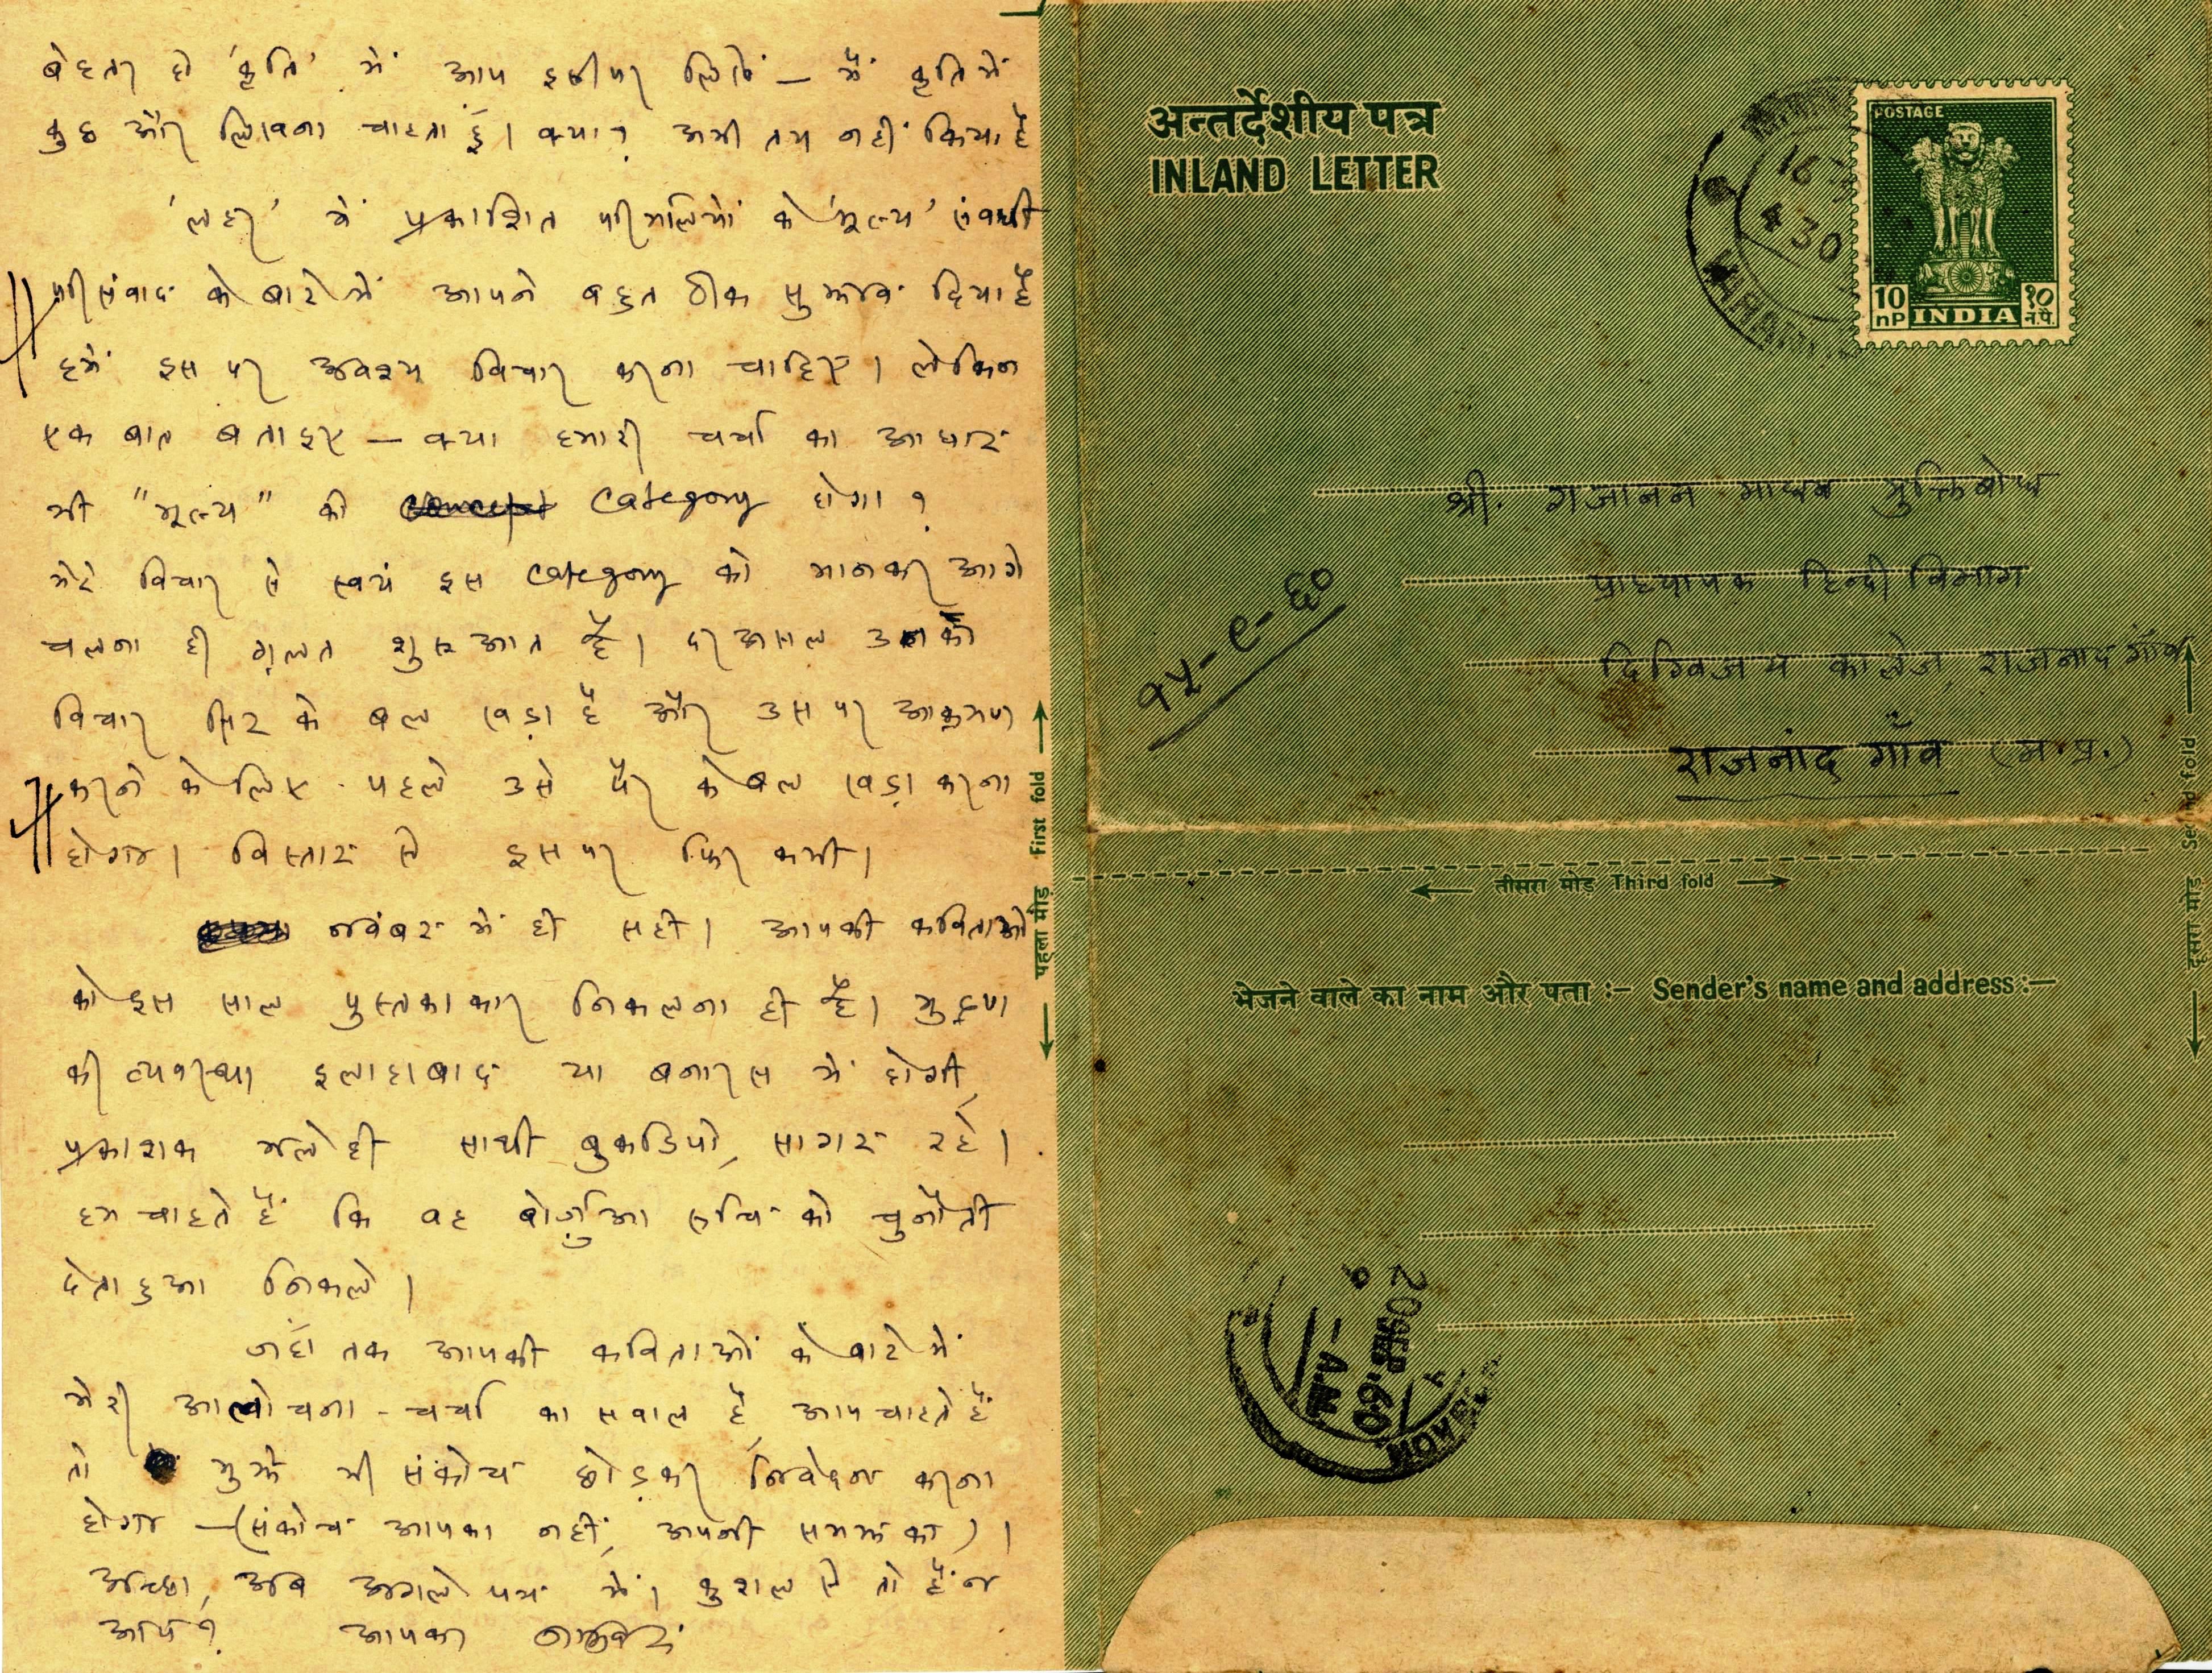 बेहतर हो 'कृति' में आप इसीपर लिखें — मैं कृति में
कुछ और लिखना चाहता हूँ। क्या? अभी तय नहीं किया है
'लहर' में प्रकाशित परिमलियों के 'मूल्य' संबंधी
परिसंवाद के बारे में आपने बहुत ठीक सुझाव दिया है
हमें इस पर अवश्य विचार करना चाहिए। लेकिन
एक बात बताइए — क्या हमारी चर्चा का आधार
भी "मूल्य" की category होगा?
मेरे विचार से स्वयं इस category को मानकर आगे
चलना ही ग़लत शुरुआत है। दर असल उनका
विचार सिर के बल खड़ा है और उस पर आक्रमण
करने के लिए पहले उसे पैर के बल खड़ा करना
होगा। विस्तार से इस पर फिर कभी।
नवंबर में ही सही। आपकी कविताओं
को इस साल पुस्तकाकार निकलना ही है। मुद्रण
की व्यवस्था इलाहाबाद या बनारस में होगी,
प्रकाशक भले ही साथी बुकडिपो, सागर रहे।
हम चाहते हैं कि वह बोर्ज़ुआ रुचि को चुनौती
देता हुआ निकले।
जहाँ तक आपकी कविताओं के बारे में
मेरी आलोचना-चर्चा का सवाल है, आप चाहते हैं
तो मुझे भी संकोच छोड़कर निवेदन करना
होगा — (संकोच आपका नहीं, अपनी समझ का)।
अच्छा, अब अगले पत्र में। कुशल से तो हैं न
आप? आपका नामवर
अन्तर्देशीय पत्र
INLAND LETTER
POSTAGE
10 nP INDIA १० न.पै.
16
4 30
श्री. गजानन माधव मुक्तिबोध
प्राध्यापक हिन्दी विभाग
दिग्विजय कालेज, राजनाद गाँव
राजनांद गाँव (म.प्र.)
१५-९-६०
पहला मोड़ First fold
दूसरा मोड़ Second fold
तीसरा मोड़ Third fold
भेजने वाले का नाम और पता :— Sender's name and address :—